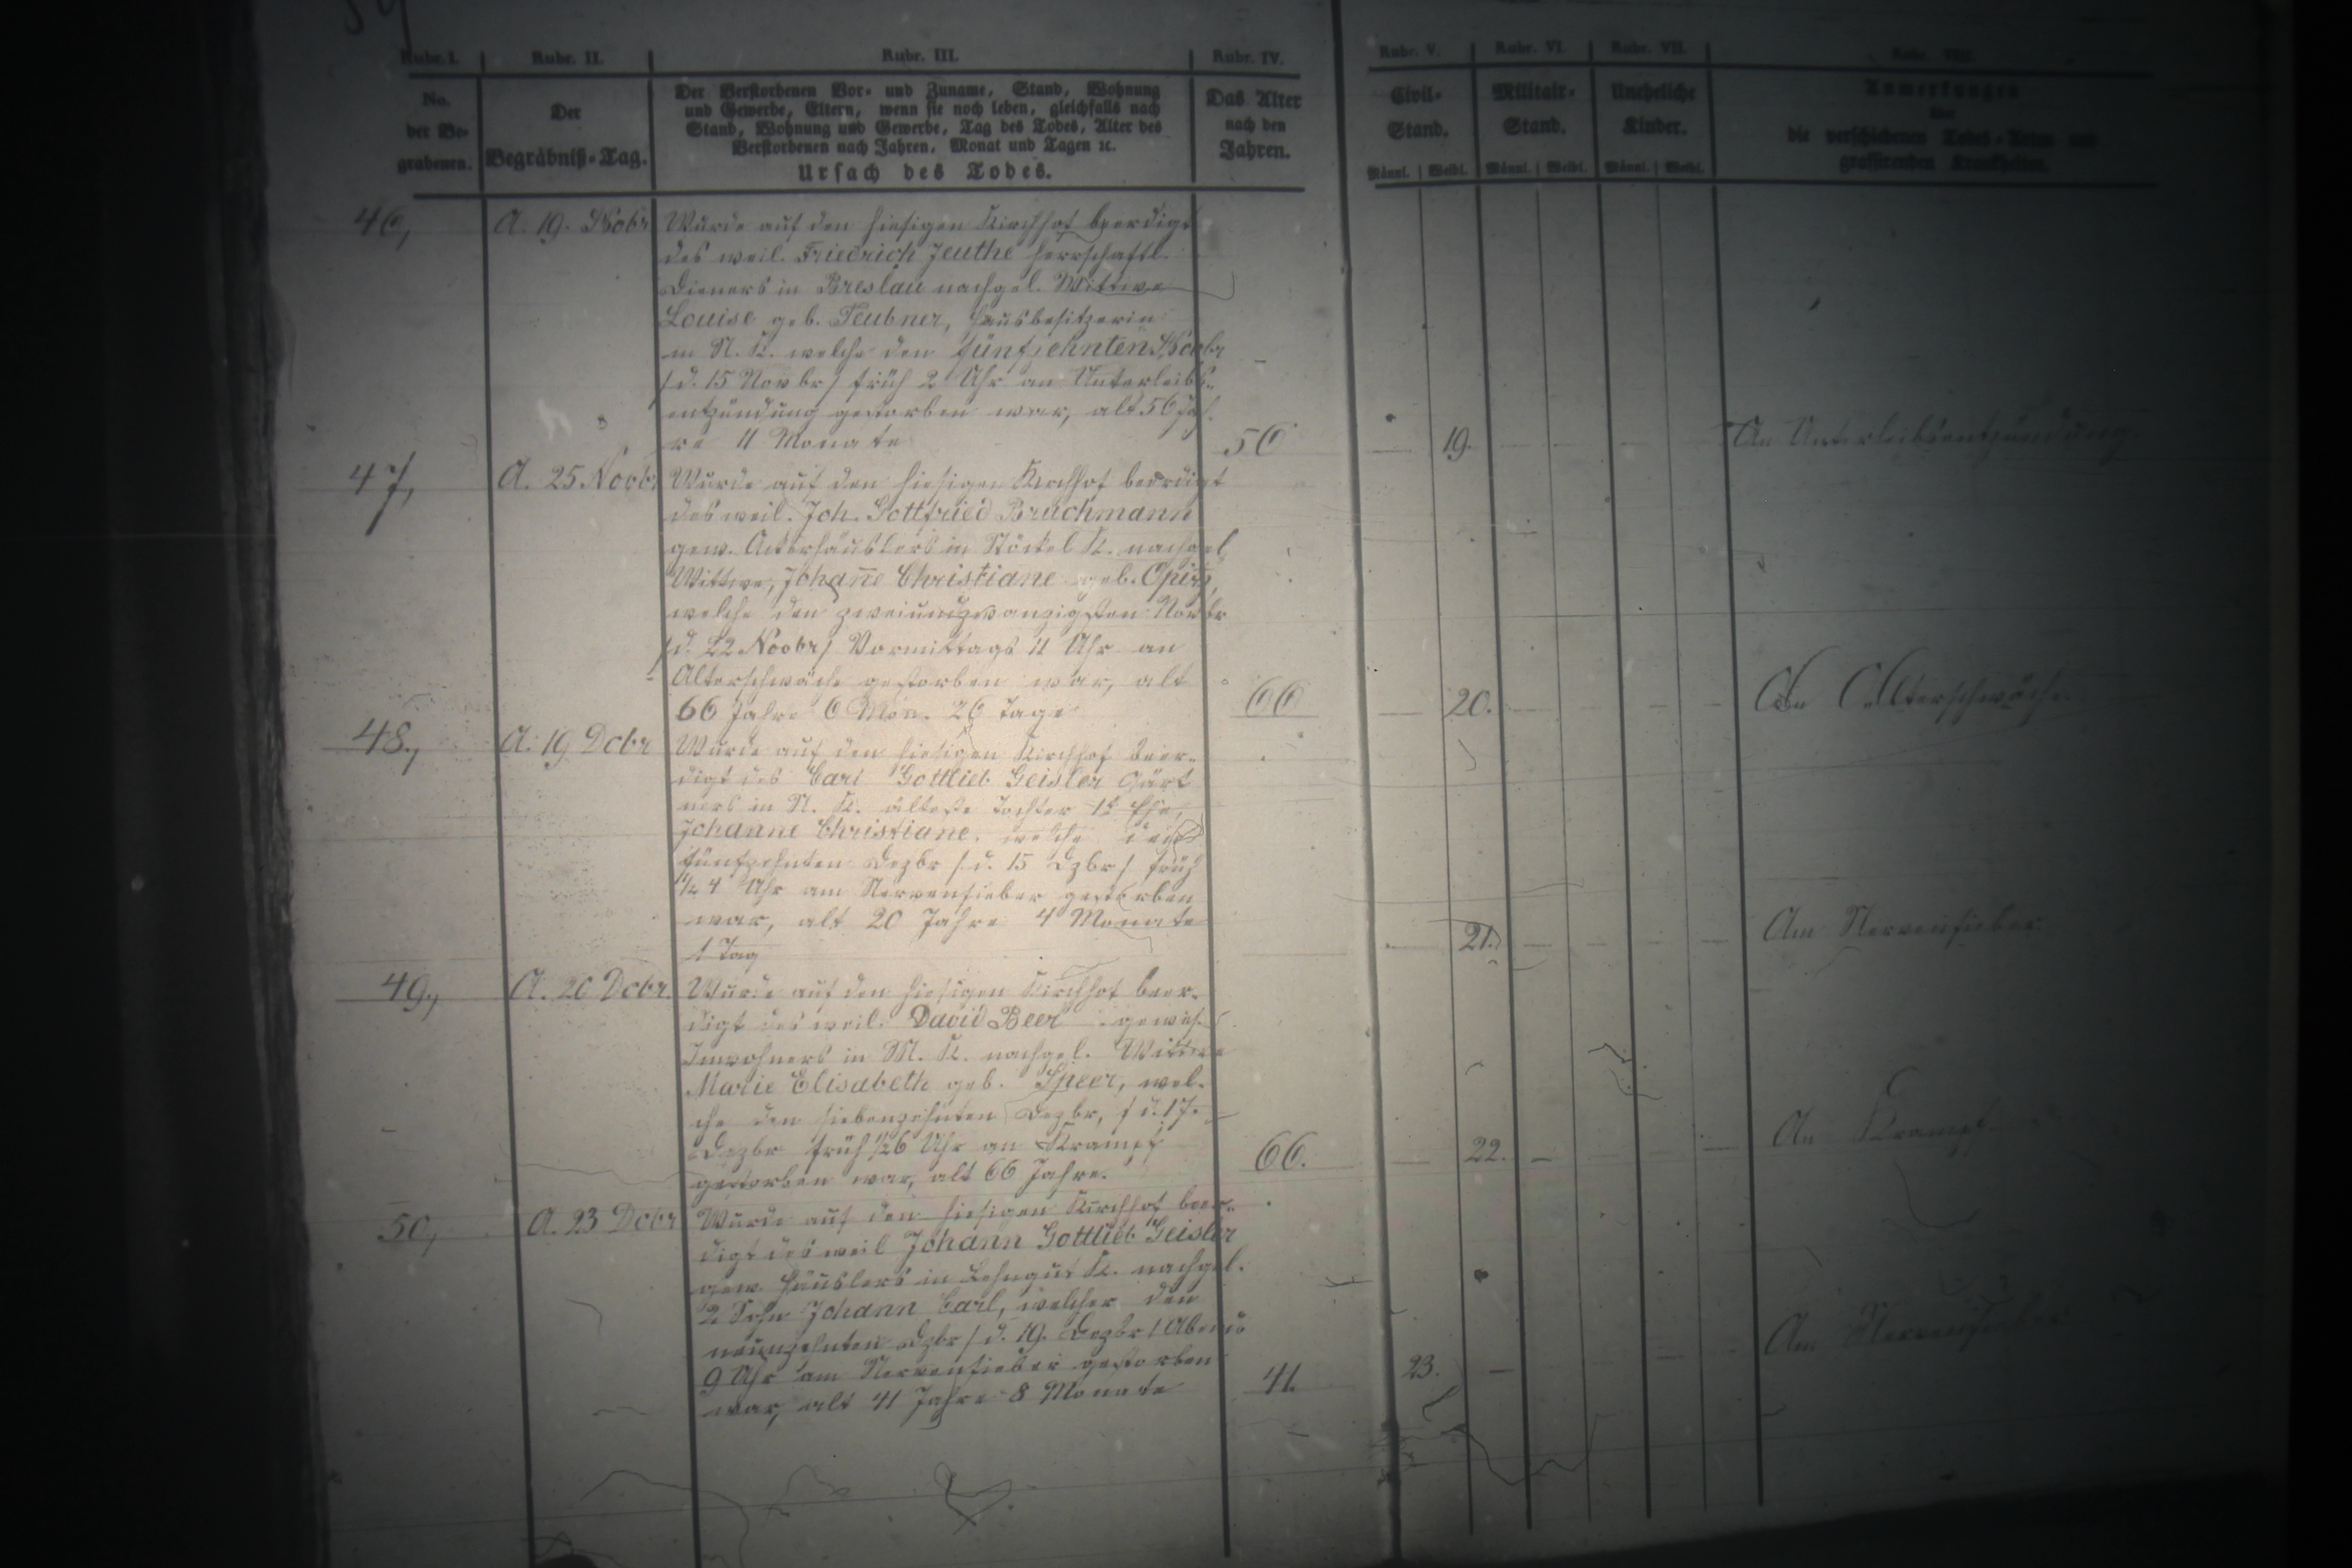 Rubr. I. Rubr. II. Rubr. III. Rubr. IV. Rubr. V. Rubr. VI. Rubr. VII. Rubr. VIII.
No.
der Be-
grabenen.
Der
Begräbniß-Tag.
Der Verstorbenen Vor- und Zuname, Stand, Wohnung
und Gewerbe, Eltern, wenn sie noch leben, gleichfalls nach
Stand, Wohnung und Gewerbe, Tag des Todes, Alter des
Verstorbenen nach Jahren, Monat und Tagen ꝛc.
Ursach des Todes.
Das Alter
nach den
Jahren.
Civil-
Stand.
Männl. Weibl.
Militair-
Stand.
Männl. Weibl.
Uneheliche
Kinder.
Männl. Weibl.
Anmerkungen
über
die verschiedenen Todes-Arten und
grassirenden Krankheiten.
46, A. 19. Novbr Wurde auf den hiesigen Kirchhof beerdigt
des weil. Friedrich Jeuthe herrschaftl.
Dieners in Breslau nachgel. Wittwe
Louise geb. Teubner, Hausbesitzerin
in N. K. welche den fünfzehnten Novbr
/ d. 15 Novbr / früh 2 Uhr an Unterleibs-
entzündung gestorben war, alt 56 Jah-
re 11 Monate 56 19. An Unterleibsentzündung.
47, A. 25 Novbr Wurde auf den hiesigen Kirchhof beerdigt
des weil. Joh. Gottfried Bruchmann
gew. Auenhäuslers in Stöckel K. nachgel.
Wittwe, Johan̄e Christiane geb. Opitz,
welche den zweiundzwanzigsten Novbr
/ d. 22 Novbr / Vormittags 11 Uhr an
Alterschwäche gestorben war, alt
66 Jahre 6 Mon. 26 Tage 66 20. An Alterschwäche.
48., A. 19 Dcbr Wurde auf den hiesigen Kirchhof beer-
digt des Carl Gottlieb Geisler Gärt
ners in N. K. älteste Tochter 1r Ehe,
Johanne Christiane, welche den
fünfzehnten Dezbr / d. 15 Dzbr / früh
1/2 4 Uhr am Nervenfieber gestorben
war, alt 20 Jahre 4 Monate
1 Tag 21. Am Nervenfieber
49., A. 20 Dcbr. Wurde auf den hiesigen Kirchhof beer-
digt des weil. David Beer gewes.
Inwohners in M. K. nachgel. Wittwe
Marie Elisabeth geb. Speer, wel-
che den siebenzehnten Dezbr, / d. 17.
Dezbr früh 1/2 6 Uhr an Krampf
gestorben war, alt 66 Jahre. 66. 22. An Krampf
50, A. 23 Dcbr Wurde auf den hiesigen Kirchhof beer-
digt des weil Johann Gottlieb Geisler
gew. Häuslers in Lehngut K. nachgel.
2 Sohn Johann Carl, welcher den
neunzehnten Dzbr / d. 19. Dezbr / Abends
9 Uhr am Nervenfieber gestorben
war, alt 41 Jahre 8 Monate 41. 23. Am Nervenfieber